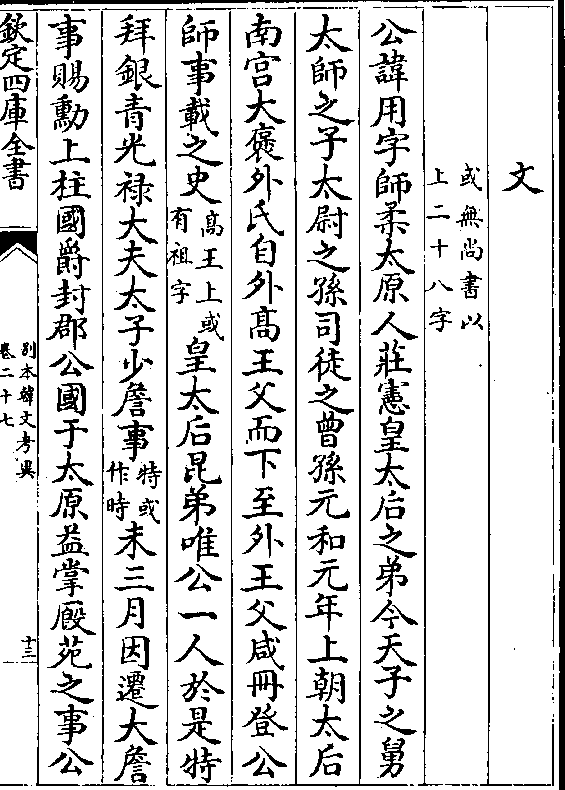 文
或無尚書以
上二十八字
公諱用字師柔太原人莊憲皇太后之弟今天子之舅
太師之子太尉之孫司徒之曾孫元和元年上朝太后
南宫大褒外氏自外髙王父而下至外王父咸冊登公
師事載之史
髙王上或
有祖字
皇太后昆弟唯公一人於是特
拜銀青光禄大夫太子少詹事
特或
作時
未三月因遷大詹
事賜勲上柱國爵封郡公國于太原益掌廏苑之事公
欽定四庫全書
别本韓文考異
卷二十七
十三